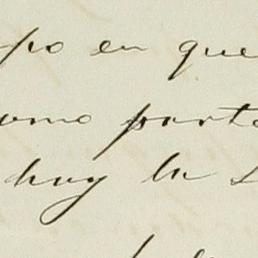 po en que
omo parte
hay la